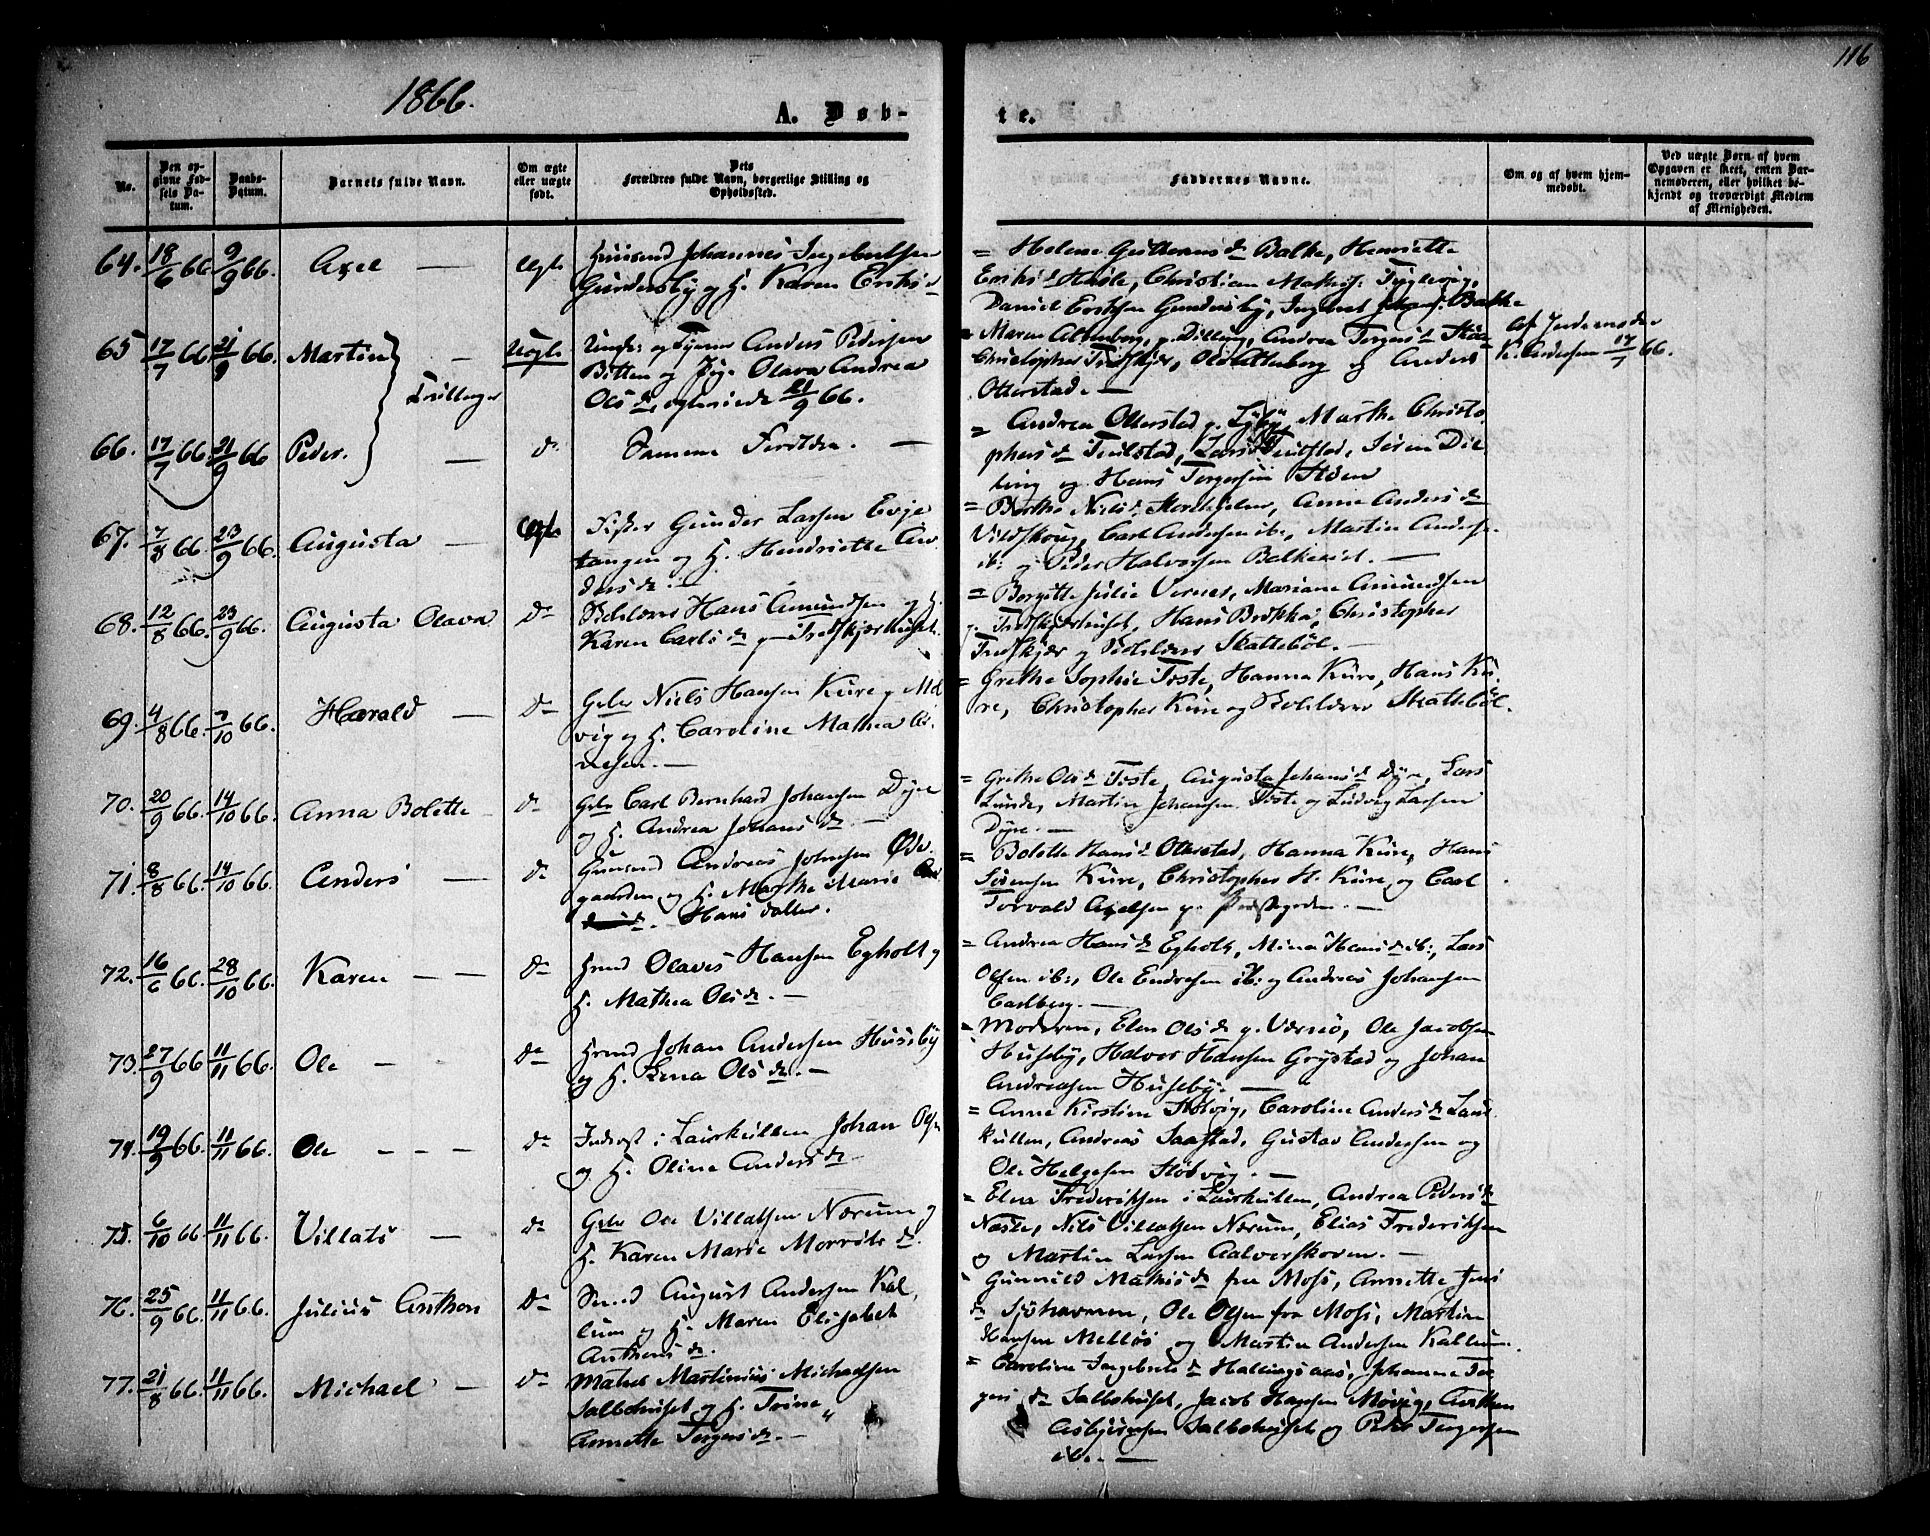 116
1866.
A. Døb-
te.
No.
Den op-
givne Fød-
sels Da-
tum.
Daabs-
Datum.
Barnets fulde Navn.
Om ægte
eller uægte
født.
Dets
Forældres fulde Navn, borgerlige Stilling og
Opholdssted.
Faddernes Navne.
Om og af hvem hjem-
medøbt.
Ved uægte Børn af hvem
Opgaven er skeet, enten Bar-
nemoderen, eller hvilket be-
kjendt og troværdigt Medlem
af Menigheden.
64. 18/6 66. 9/9 66. Axel — Ægte
Huusmd Johannes Ingebretsen
Gundersby og H. Karen Eriksd
= Helene Guttormsd Balke, Henriette
Eriksd Hasle, Christian Mathis. Fuglevig,
Daniel Eriksen Gundersby, Ingval Johans. Balke
65 17/7 66. 21/9 66. Martin — Uægte
Ungk. og Tjener Anders Pedersen
Bitten og Pige Olava Andrea
Olsd, ægteviede 21/9 66.
= Maren Altenborg p. Dilling, Andrea Torgersd
Christopher Tredskjær, Ole Altenborg og Anders
Otterstad. —
Af Jordemoder
K. Andersen 17/7 66.
Tvillinger
66. 17/7 66 21/9 66 Peder. — do
Samme Forældre. —
= Andrea Otterstad p. Lyby, Marthe Christo-
phersd Teulstad, Lars Teulstad, Søren Dil-
ling og Hans Torgersen
67. 7/8 66. 23/9 66. Augusta — Ægte
Fisker Gunder Larsen Evje
tangen og H. Henriette An-
dersd. —
= Berthe Nielsd Aornkilen, Anne Andersd
Vildskoug, Carl Andersen ib., Martin Anders.
ib. og Peder Halvorsen Balkeeiet. —
68. 12/8 66. 23/9 66. Augusta Olava do
Hans Amundsen og H.
Karen Carlsd p. Tredskjærhuset.
= Borgitte Julie Verner, Mariane Amundsen
p. Tredskjærhuset, Hans Brekke, Christopher
Tredskjær og Skattebøl. —
69. 4/8 66. 7/10 66. Harald — do
Gbr Niels Hansen Kure p. Mel
vig og H. Caroline Mathea
— 
= Grethe Sophie Toste, Hanna Kure, Hans Ku-
re, Christopher Kure og Skattebøl.
70. 20/9 66. 14/10 66. Anna Bolette do
Gbr Carl Bernhard Johansen Dyre
og H. Andrea Johansd. —
= Grethe Olsd Toste, Augusta Johansd Dyre, Lars
Lunde, Martin Johansen Toste og Ludvig Larsen
Dyre. —
71. 8/8 66. 14/10 66. Anders — do
Huusmd Andreas Johnsen Øde-
gaarden og H. Marthe Marie
Hans datter.
= Bolette Hansd Otterstad, Hanna Kure, Hans
Sørensen Kure, Christopher H. Kure og Carl
Torvald Axelsen p. —
72. 16/6 66. 28/10 66. Karen — — do
Hmd Olaves Hansen Egholt og
H. Mathea Olsd. —
= Andrea Hansd Egholt, Mina Hansd ib., Lars
Olsen ib., Ole Endresen ib. og Andreas Johansen
Carlberg. —
73. 27/9 66 11/11 66. Ole — do
Hmd Johan Andersen Huseby
og H. Lena Olsd. —
= Moderen, Elen Olsd p. Værnø, Ole Jacobsen
Huseby, Halvor Hansen Grystad og Johan
Andreasen Huseby. —
74. 19/9 66. 11/11 66. Ole — — — do
Inderst i Laurkullen Johan Olsn
og H. Oline Andersd
= Anne Kirstine Støtvig, Caroline Andersd Laur
kullen, Andreas Saastad, Gustav Andersen og
Ole Helgesen Støtvig. —
75. 6/10 66 11/11 66. Villats — do
Gbr Ole Villatsen Nærum og
H. Karen Marie Morritsd.
= Elen Frederiksen i Laurkullen, Andrea Pedersd
Næste, Nils Villatsen Nærum, Elias Frederiksen
og Martin Larsen Aalverskoven. —
76. 25/9 66. 11/11 66. Julius Anthon do
Smed August Andersen Kal-
lum og H. Maren Elisabet
Anthonsd.
Gunnild Mathisd fra Moss, Annette Jens
d Sjøhavnen, Ole Olsen fra Moss, Martin
Hansen Melløs og Martin Andersen Kallum.
77. 21/8 66. 11/11 66. Michael — do
Matros Martinius Michaelsen
Salbohuset og H. Trine
Annette Torgersd. —
= Caroline Ingebretsd Hallingsaas, Johanne Tor-
gersd Salbohuset, Jacob Hansen Movig, Anthon
Asbjørnsen Salbohuset og Peter Torgersen
ib. —